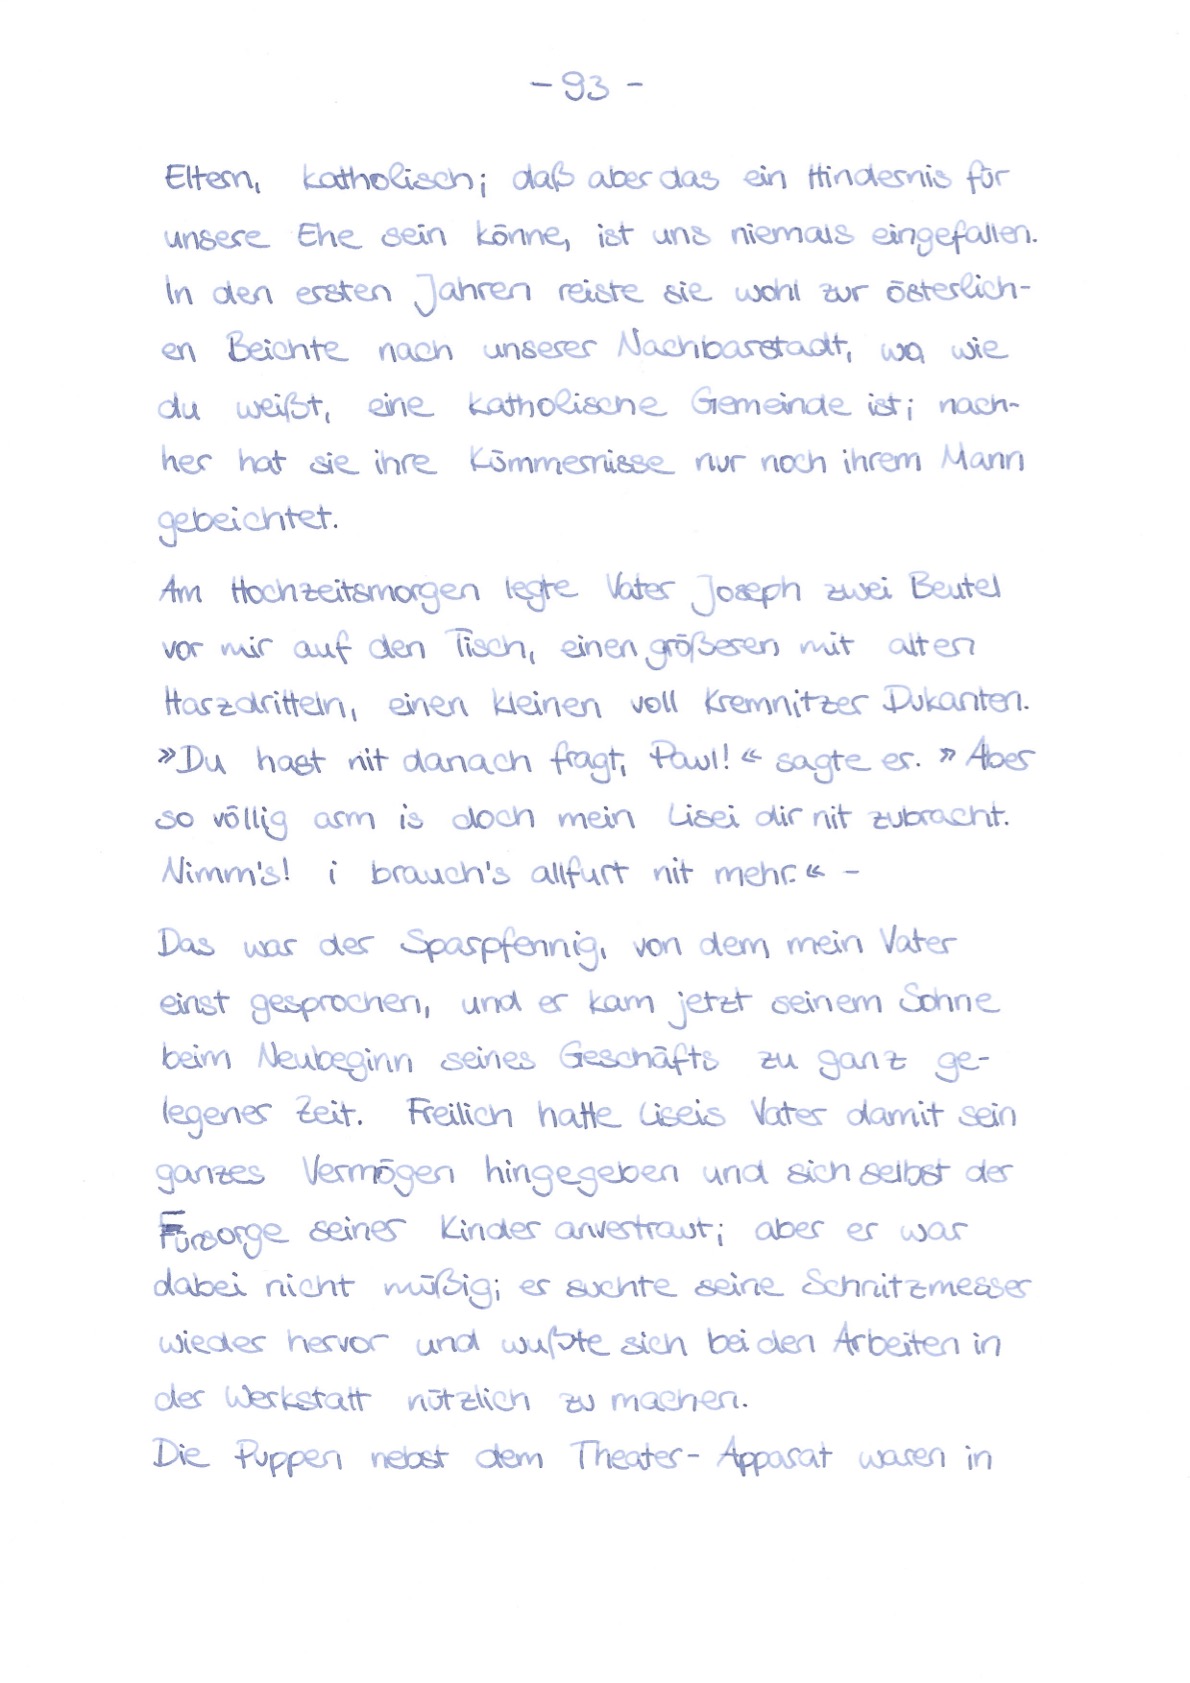 - 93 -
Eltern, katholisch; daß aber das ein Hindernis für
unsere Ehe sein könne, ist uns niemals eingefallen.
In den ersten Jahren reiste sie wohl zur österlich-
en Beichte nach unserer Nachbarstadt, wo, wie
du weißt, eine katholische Gemeinde ist; nach-
her hat sie ihre Kümmernisse nur noch ihrem Mann
gebeichtet.
Am Hochzeitsmorgen legte Vater Joseph zwei Beutel
vor mir auf den Tisch, einen größeren mit alten
Harzdritteln, einen kleinen voll Kremnitzer Dukanten.
»Du hast nit danach fragt, Paul!« sagte er. »Aber
so völlig arm is doch mein Lisei dir nit zubracht.
Nimm's! i brauch's allfurt nit mehr.« -
Das war der Sparpfennig, von dem mein Vater
einst gesprochen, und er kam jetzt seinem Sohne
beim Neubeginn seines Geschäfts zu ganz ge-
legener Zeit. Freilich hatte Liseis Vater damit sein
ganzes Vermögen hingegeben und sich selbst der
Fürsorge seiner Kinder anvertraut; aber er war
dabei nicht müßig; er suchte seine Schnitzmesser
wieder hervor und wußte sich bei den Arbeiten in
der Werkstatt nützlich zu machen.
Die Puppen nebst dem Theater-Apparat waren in